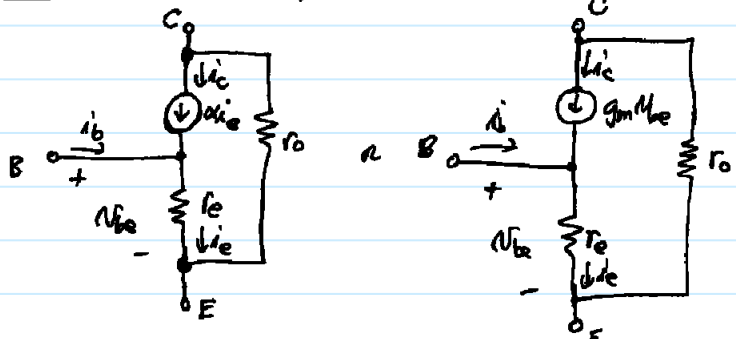 C
↓ic
αie
ro
ib
B
+
Vbe
re
-
↓ie
E
or
C
↓ic
gm Vbe
ro
i
B
+
Vbe
re
-
↓ie
E